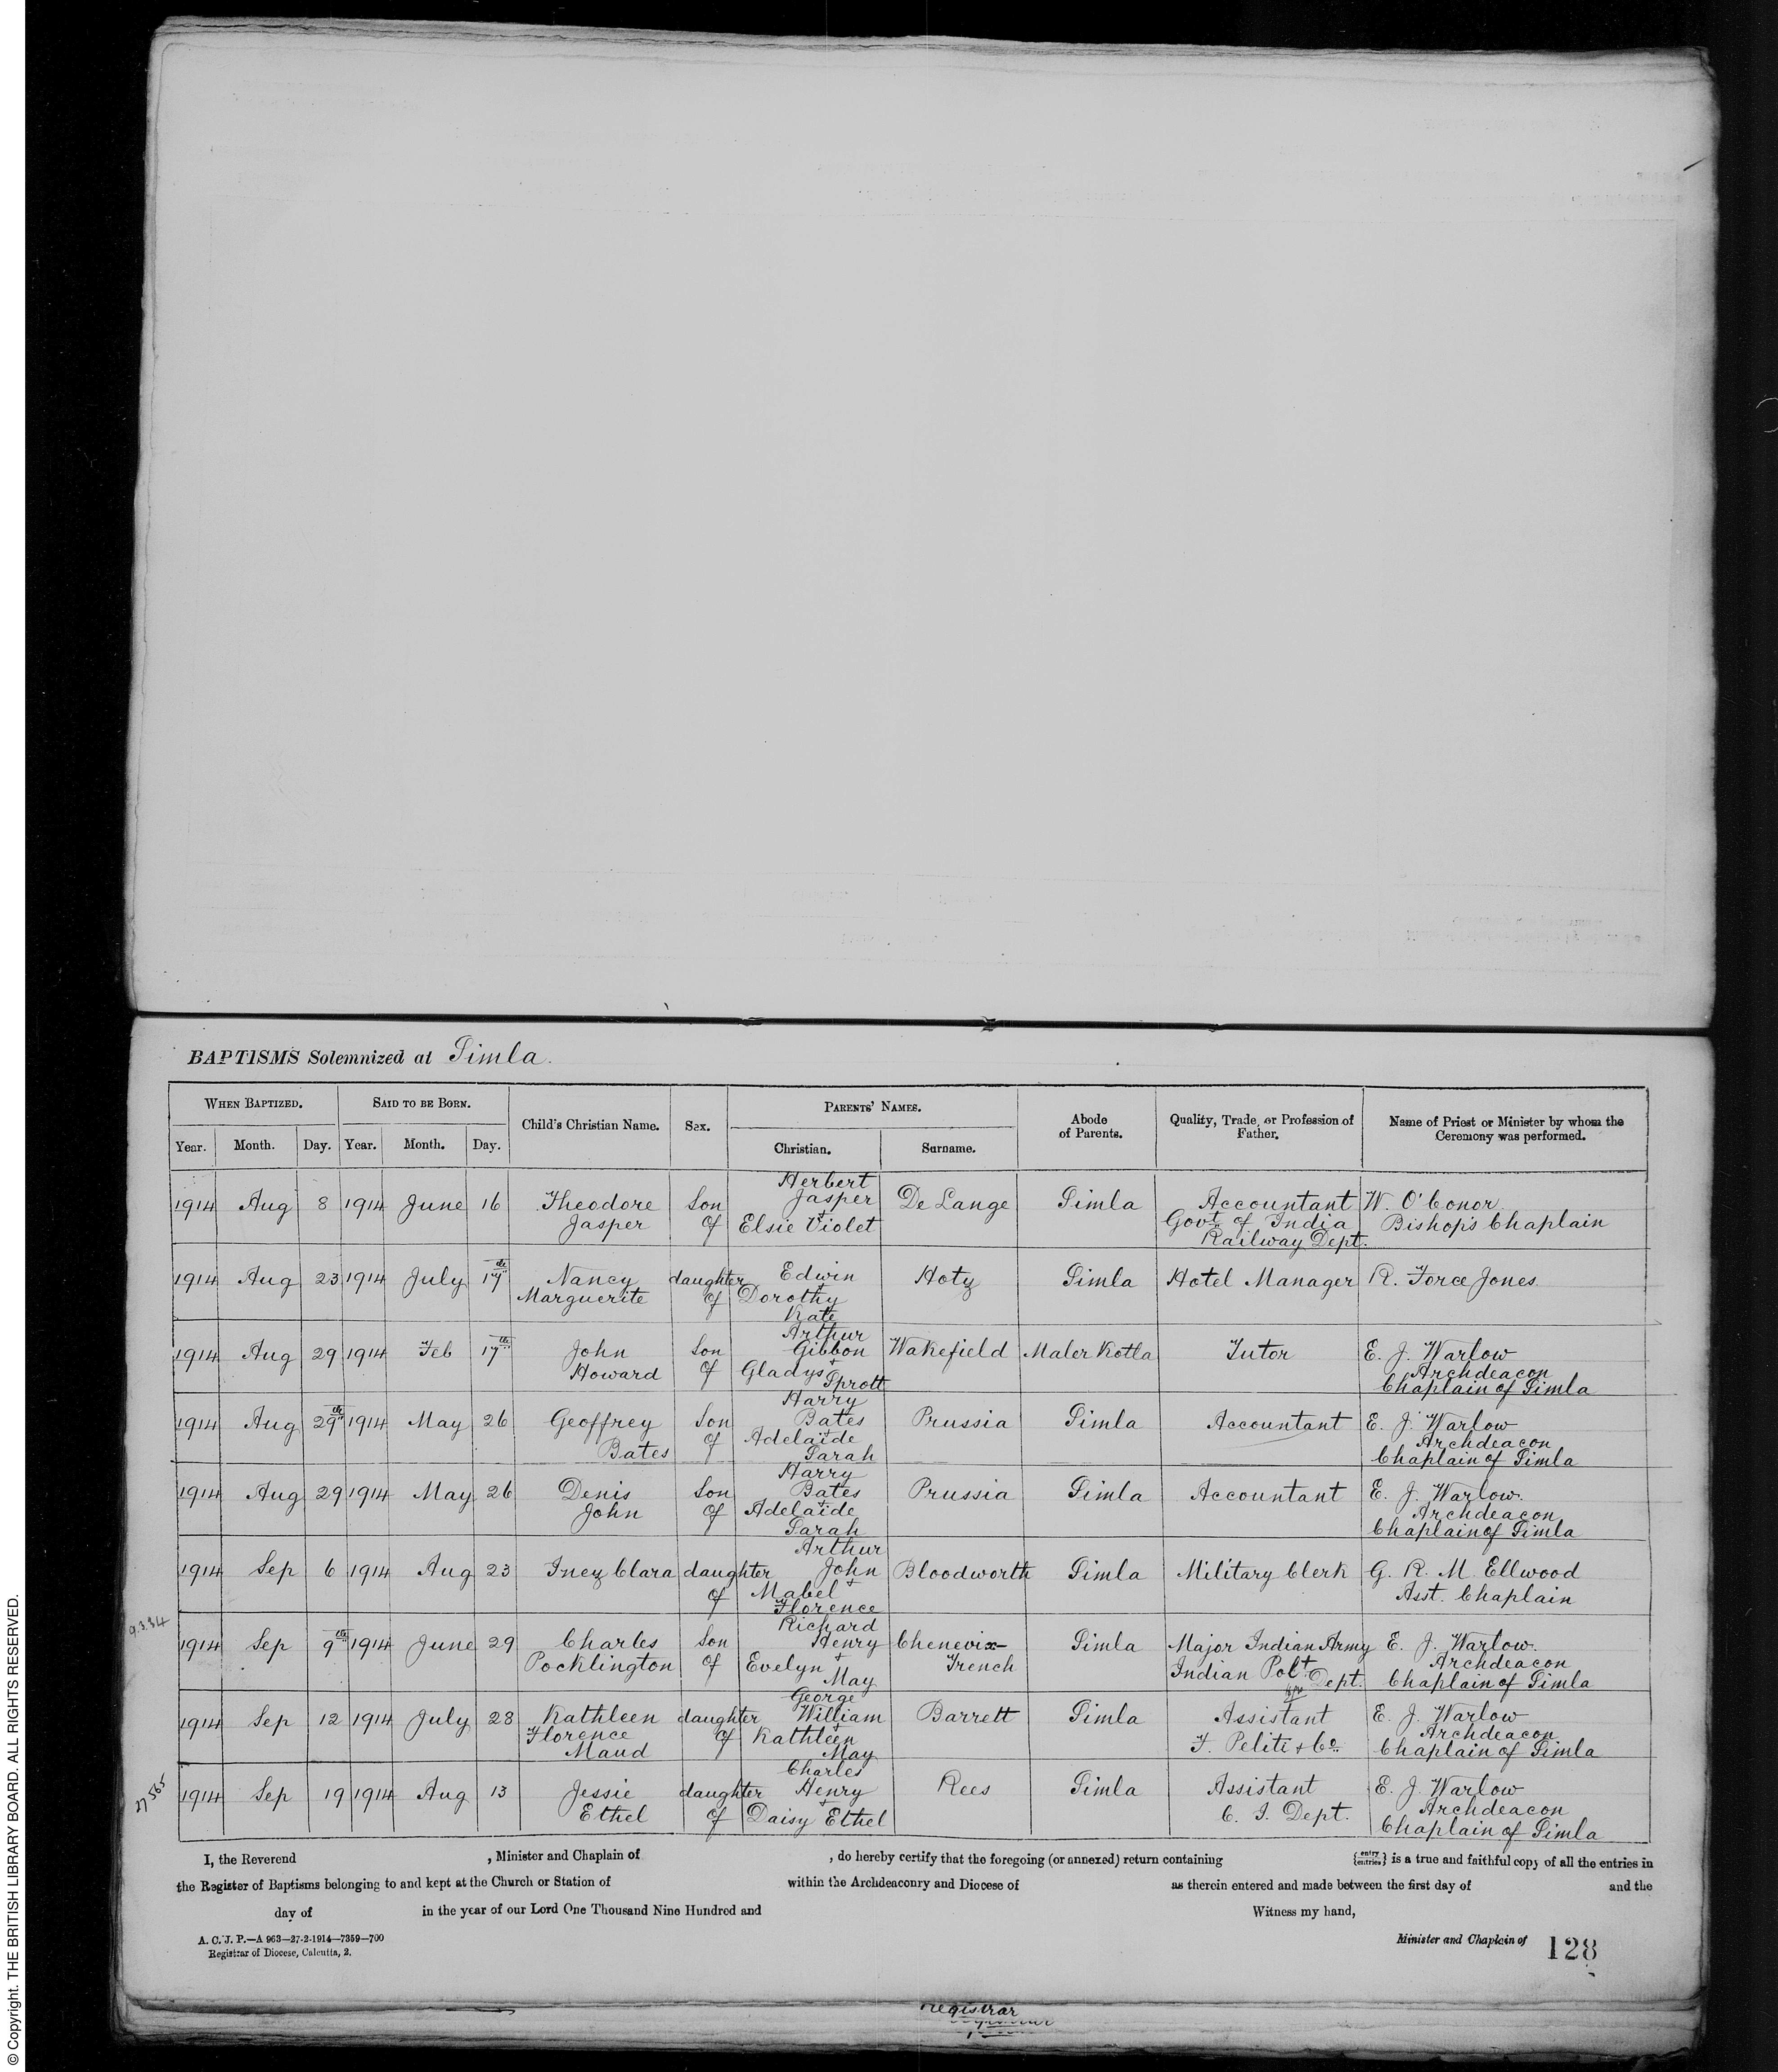 BAPTISMS Solemnized at Simla.
WHEN BAPTIZED. SAID TO BE BORN. Child's Christian Name. Sex. PARENTS' NAMES. Abode of Parents. Quality, Trade, or Profession of Father. Name of Priest or Minister by whom the Ceremony was performed.
Year. Month. Day. Year. Month. Day. Christian. Surname.
1914 Aug 8 1914 June 16 Theodore Jasper Son of Herbert Jasper + Elsie Violet De Lange Simla Accountant Govt. of India Railway Dept. W. O'Conor Bishop's Chaplain
1914 Aug 23 1914 July 17th Nancy Marguerite daughter of Edwin Dorothy Kate Hotz Simla Hotel Manager R. Force Jones
1914 Aug 29 1914 Feb 17th John Howard Son of Arthur Gibbon + Gladys Sprott Wakefield Maler Kotla Tutor E. J. Warlow Archdeacon Chaplain of Simla
1914 Aug 29th 1914 May 26 Geoffrey Bates Son of Harry Bates + Adelaide Sarah Prussia Simla Accountant E. J. Warlow Archdeacon Chaplain of Simla
1914 Aug 29 1914 May 26 Denis John Son of Harry Bates + Adelaide Sarah Prussia Simla Accountant E. J. Warlow. Archdeacon Chaplain of Simla
1914 Sep 6 1914 Aug 23 Inez Clara daughter of Arthur John + Mabel Florence Bloodworth Simla Military Clerk G. R. M. Ellwood Asst. Chaplain
9.3.34
1914 Sep 9th 1914 June 29 Charles Pocklington Son of Richard Henry + Evelyn May Chenevix-Trench Simla Major Indian Army Indian Polt. Dept. E. J. Warlow. Archdeacon Chaplain of Simla
1914 Sep 12 1914 July 28 Kathleen Florence Maud daughter of George William + Kathleen May Barrett Simla Assistant F. Peliti & Co. E. J. Warlow Archdeacon Chaplain of Simla
27565
1914 Sep 19 1914 Aug 13 Jessie Ethel daughter of Charles Henry + Daisy Ethel Rees Simla Assistant C. I. Dept. E. J. Warlow Archdeacon Chaplain of Simla
I, the Reverend , Minister and Chaplain of , do hereby certify that the foregoing (or annexed) return containing {entry entries} is a true and faithful copy of all the entries in
the Register of Baptisms belonging to and kept at the Church or Station of within the Archdeaconry and Diocese of as therein entered and made between the first day of and the
day of in the year of our Lord One Thousand Nine Hundred and Witness my hand,
A. C. J. P.—A 963—27-2-1914—7359—700
Registrar of Diocese, Calcutta, 2.
Minister and Chaplain of 128
Registrar
© Copyright. THE BRITISH LIBRARY BOARD. ALL RIGHTS RESERVED.